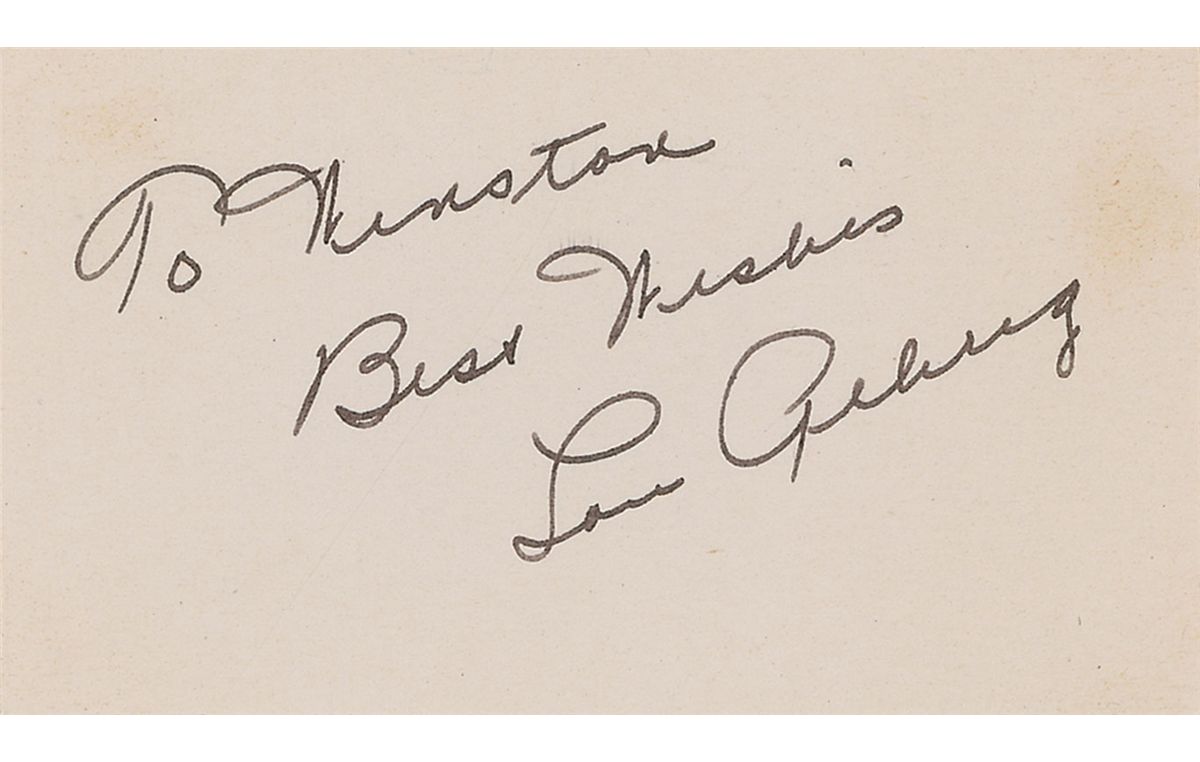 To Winston
Best Wishes
Lou Gehrig